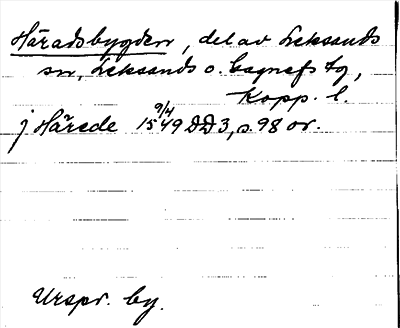 Häradsbygden, del av Leksands
sn, Leksands o. Gagnefs tg,
Kopp. l.
j Härede 15 9/4 49 DD3, s. 98 or.
Urspr. by.